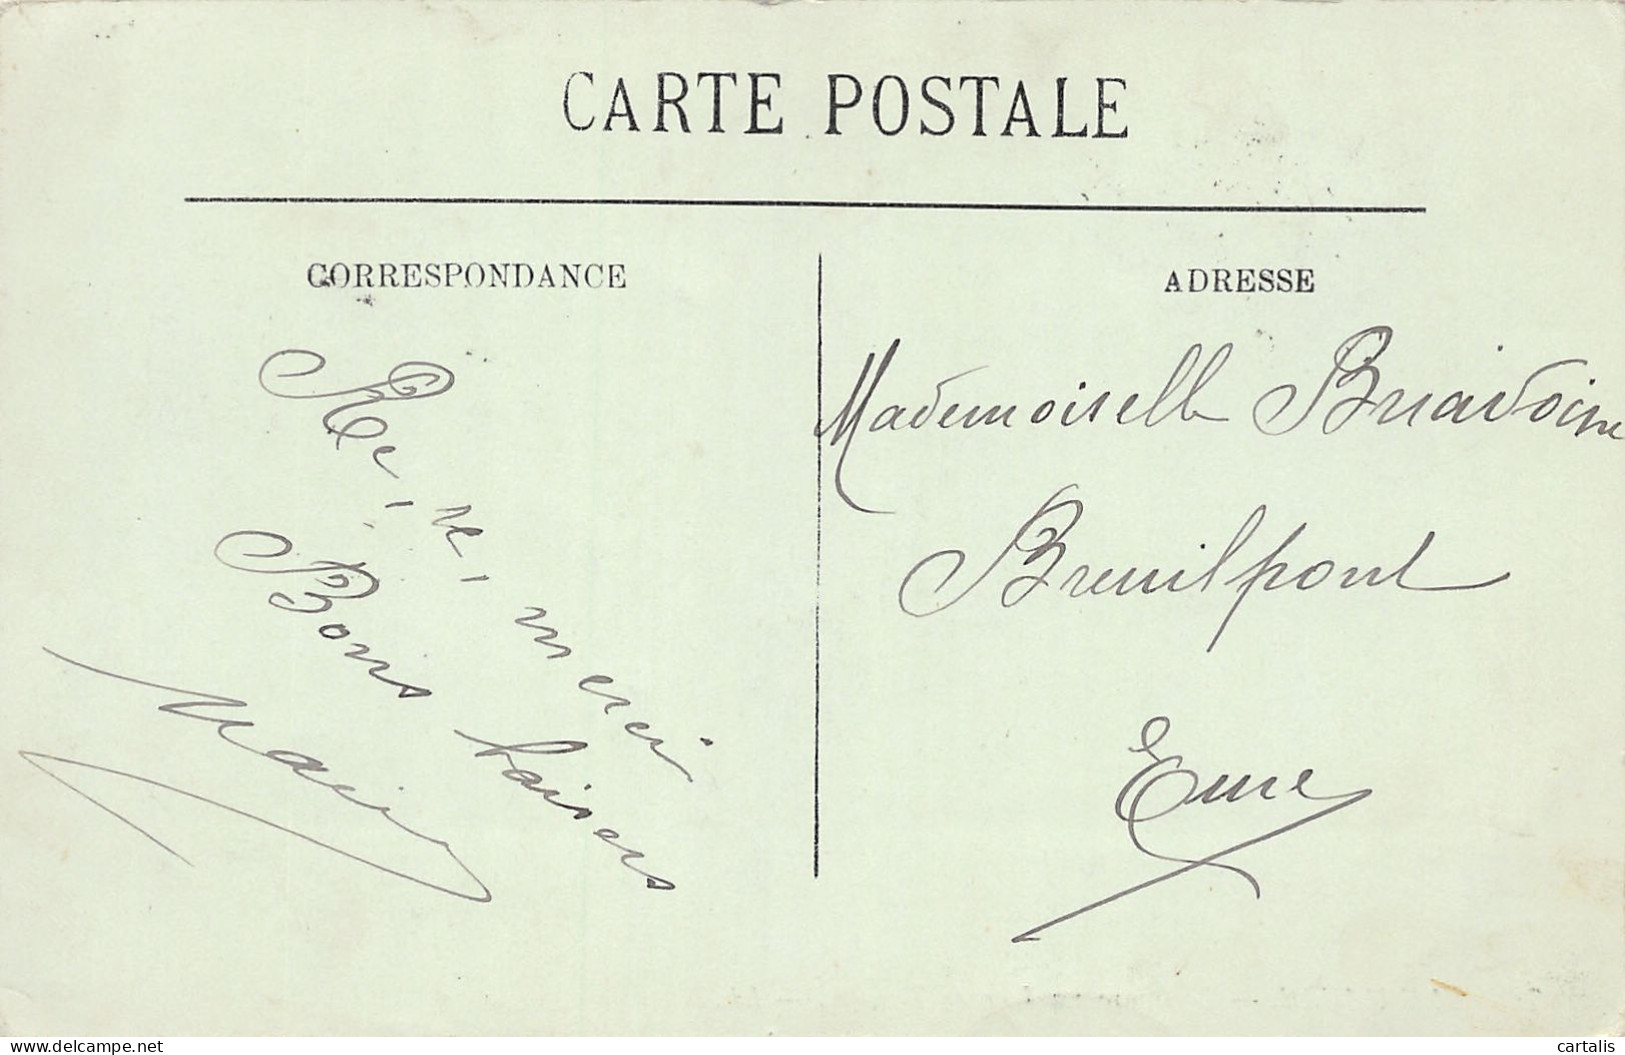 CARTE POSTALE
CORRESPONDANCE
merci
Bons baisers
ADRESSE
Mademoiselle
Breuilpont
Eure
www.delcampe.net
cartalis